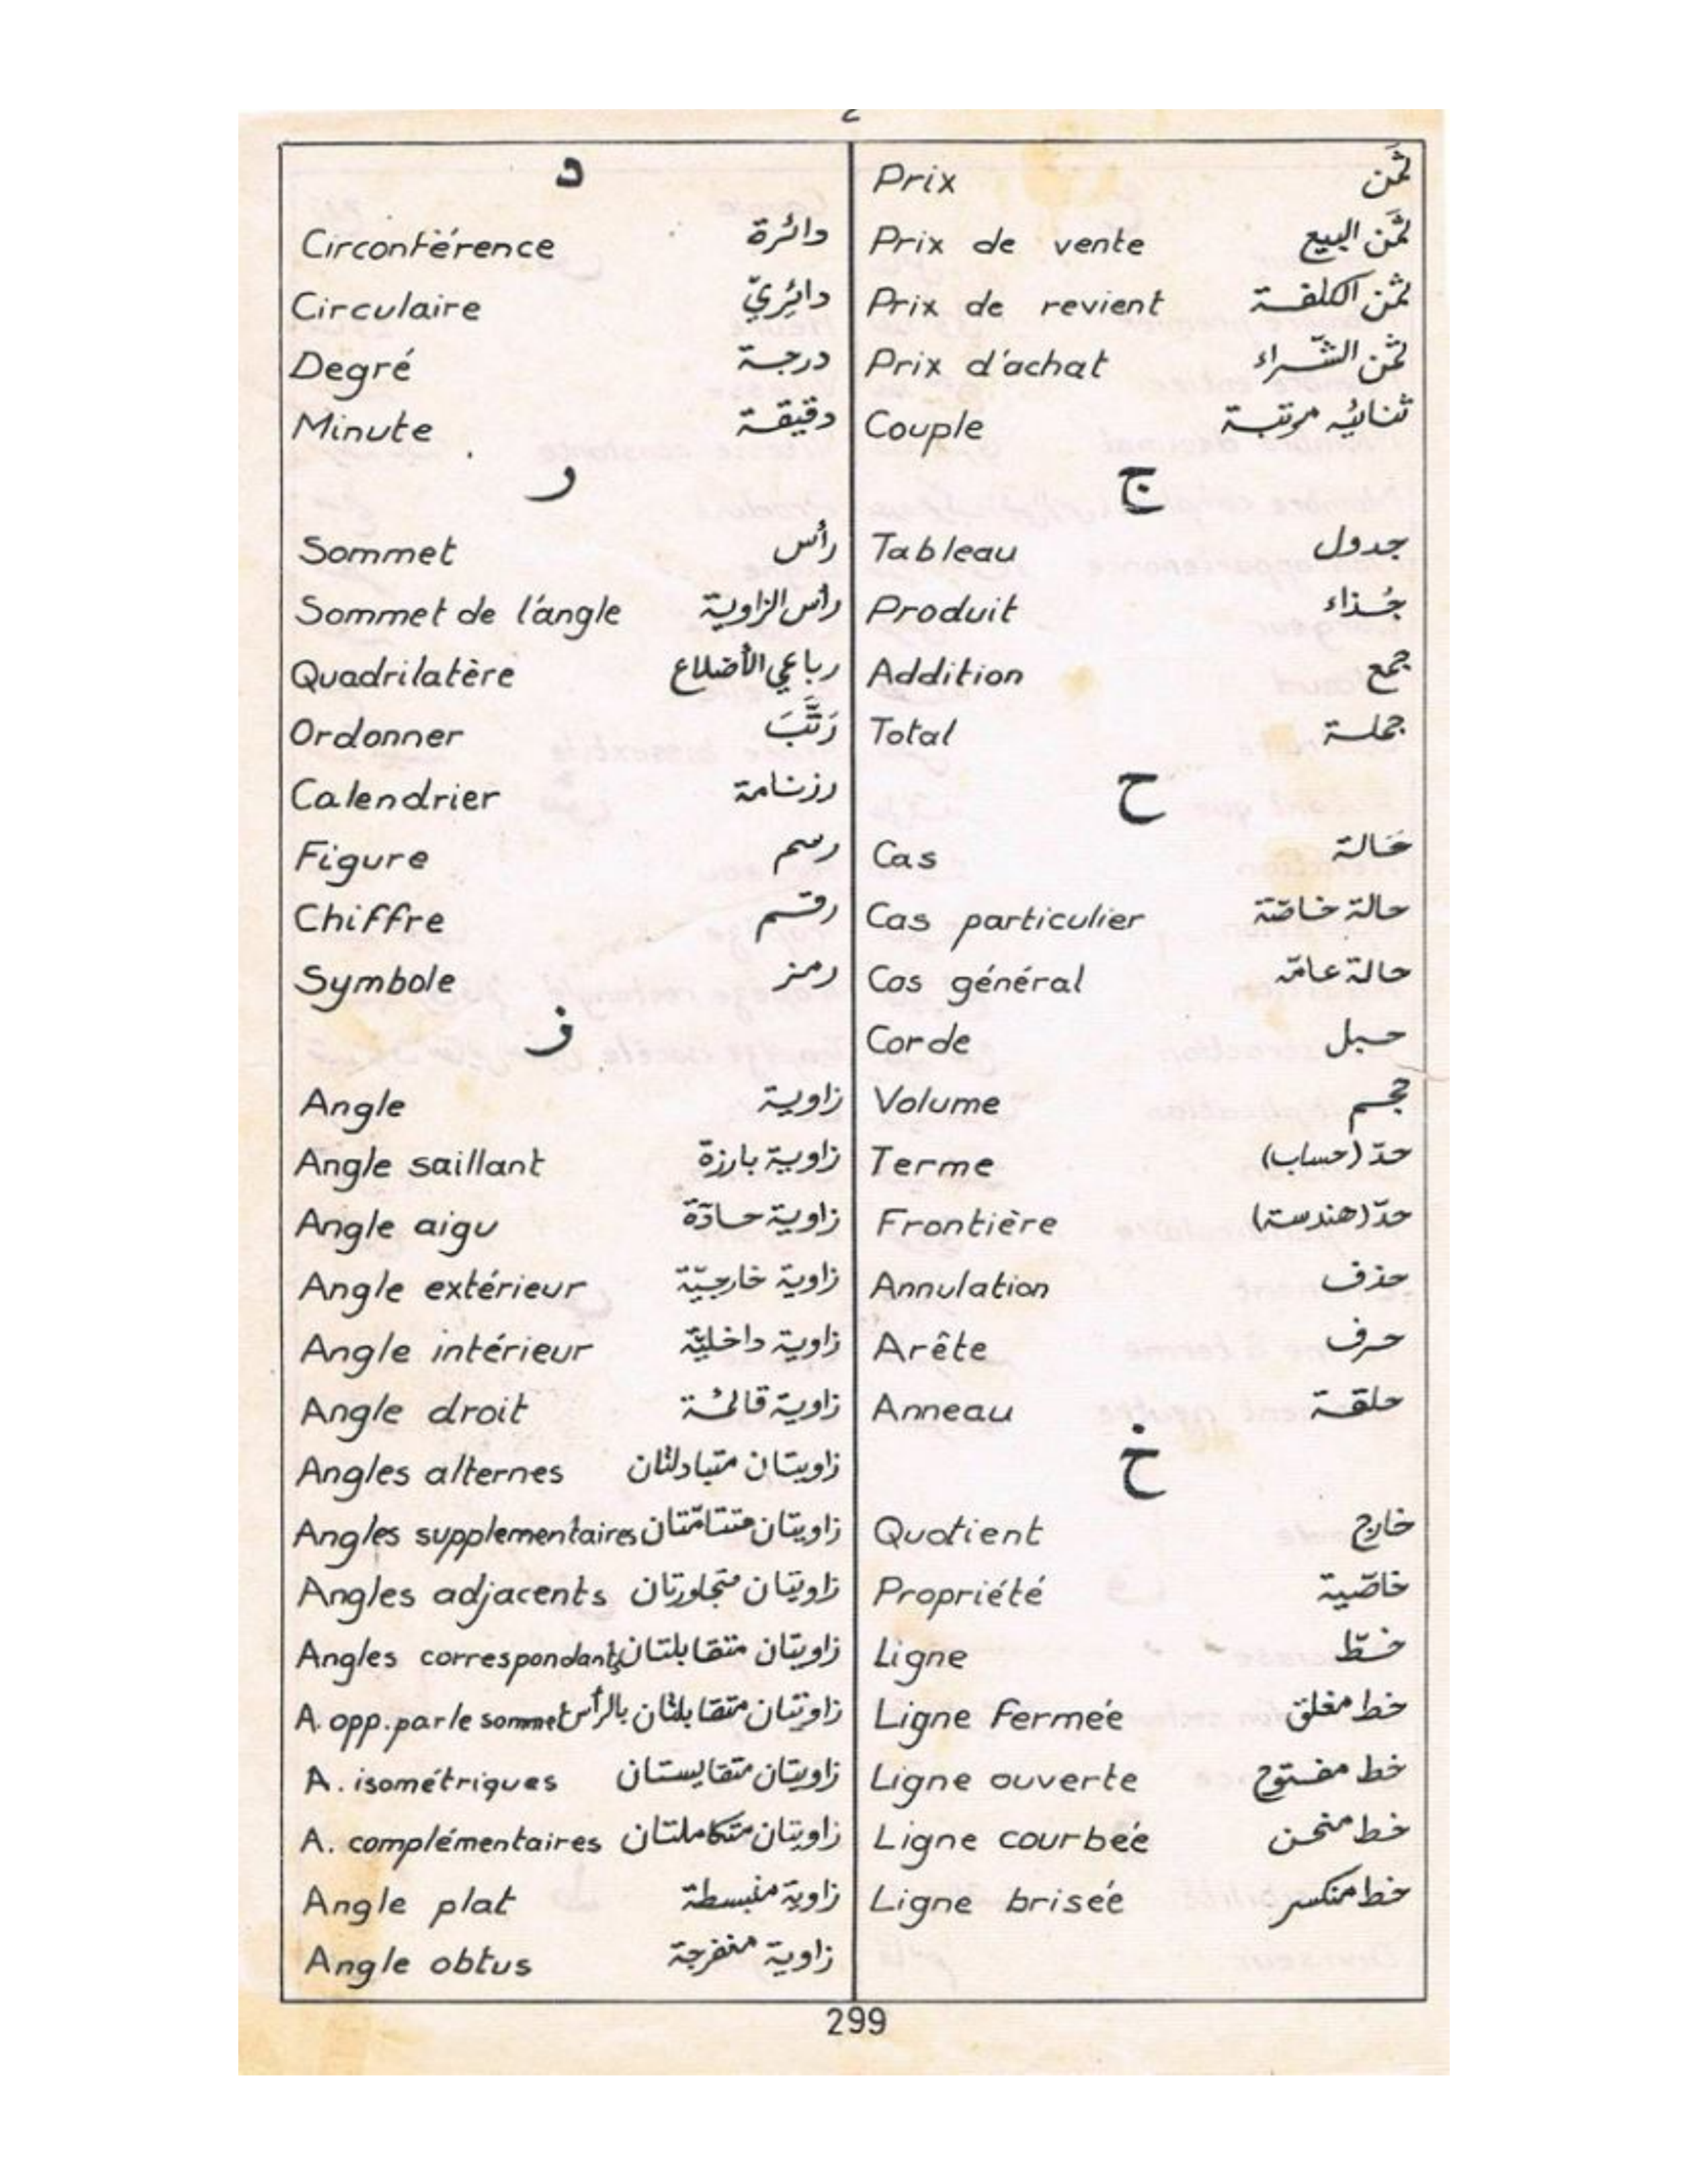 Prix ثَمَن
Prix de vente ثَمَن البيع
Prix de revient ثمن الكلفة
Prix d'achat ثمن الشّراء
Couple ثنائيّه مرتبة
ج
Tableau جدول
Produit جُذاء
Addition جمع
Total جملة
ح
Cas حَالة
Cas particulier حالة خاصّة
Cas général حالة عامّة
Corde حبل
Volume حجم
Terme حدّ (حساب)
Frontière حدّ (هندسة)
Annulation حذف
Arête حرف
Anneau حلقة
خ
Quotient خارج
Propriété خاصّية
Ligne خطّ
Ligne fermée خط مغلق
Ligne ouverte خط مفتوح
Ligne courbée خط منحن
Ligne brisée خط منكسر
د
Circonférence دائرة
Circulaire دائِريّ
Degré درجة
Minute دقيقة
ر
Sommet رأس
Sommet de l'angle رأس الزاوية
Quadrilatère رباعي الأضلاع
Ordonner رَتَّبَ
Calendrier رزنامة
Figure رسم
Chiffre رقم
Symbole رمز
ز
Angle زاوية
Angle saillant زاوية بارزة
Angle aigu زاوية حادّة
Angle extérieur زاوية خارجيّة
Angle intérieur زاوية داخليّة
Angle droit زاوية قائمة
Angles alternes زاويتان متبادلتان
Angles supplementaires زاويتان متتامّتان
Angles adjacents زاويتان متجاورتان
Angles correspondants زاويتان متقابلتان
A. opp. par le sommet زاويتان متقابلتان بالرأس
A. isométriques زاويتان متقايستان
A. complémentaires زاويتان متكاملتان
Angle plat زاوية منبسطة
Angle obtus زاوية منفرجة
299